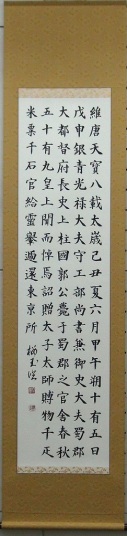 維唐天寶八載太歲己丑夏六月甲午朔十有五日
戊申銀青光禄大夫守工部尚書兼御史大夫蜀郡
大都督府長史上柱國郭公薨于蜀郡之官舍春秋
五十有九皇上聞而悼焉詔贈太子太師賻物千疋
米粟千石官給靈轝遞還東京所